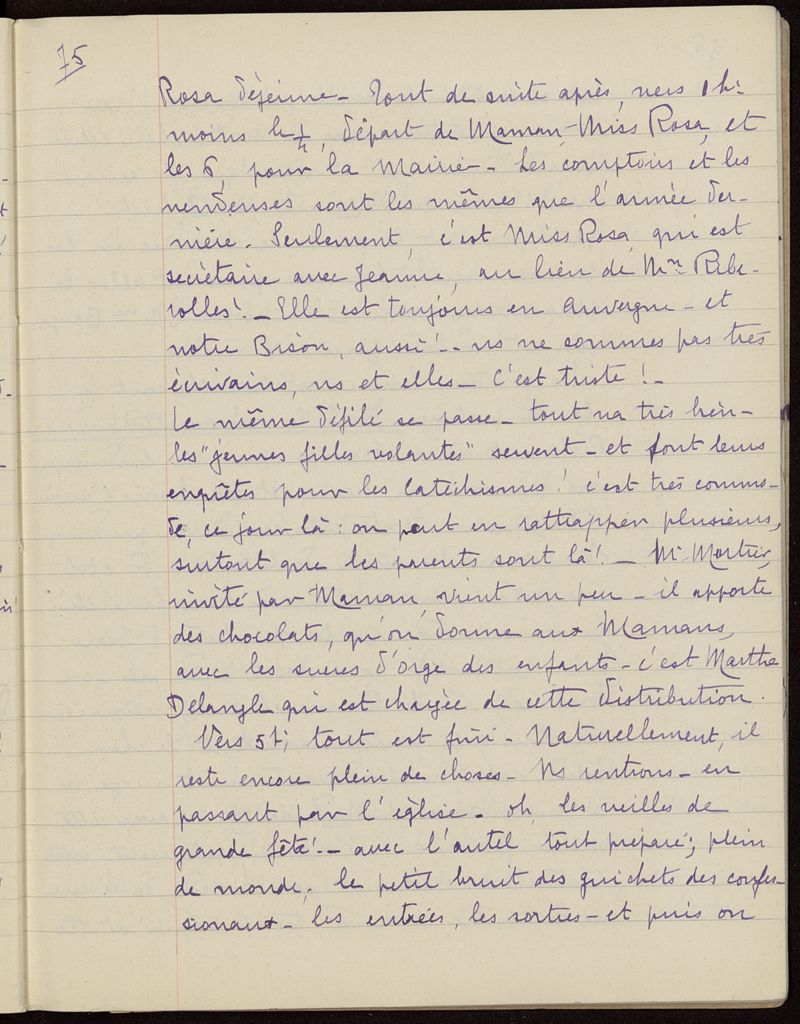 75
Rosa déjeune - Tout de suite après, vers 1h.
moins le 1/4, départ de Maman, Miss Rosa, et
les 6, pour la Mairie - Les comptoirs et les
vendeuses sont les mêmes que l'année der-
nière. Seulement, c'est Miss Rosa, qui est
secrétaire avec Jeanne, au lieu de Mme Ribe-
rolles! - Elle est toujours en Auvergne - et
notre Bison, aussi! - ns ne sommes pas très
écrivains, ns et elles - C'est triste! -
Le même défilé se passe - tout va très bien -
les "jeunes filles volantes" servent - et font leurs
enquêtes pour les catéchismes! c'est très commo-
de, ce jour là : on peut en rattrapper plusieurs,
surtout que les parents sont là! - Mr Mortier,
invité par Maman, vient un peu - il apporte
des chocolats, qu'on donne aux Mamans,
avec les sucres d'orge des enfants - c'est Marthe
Delangle qui est chargée de cette distribution.
Vers 5h, tout est fini - Naturellement, il
reste encore plein de choses - Ns rentrons - en
passant par l'église - oh, les veilles de
grande fête! - avec l'autel tout préparé; plein
de monde; le petit bruit des guichets des confes-
sionaux - les entrées, les sorties - et puis on